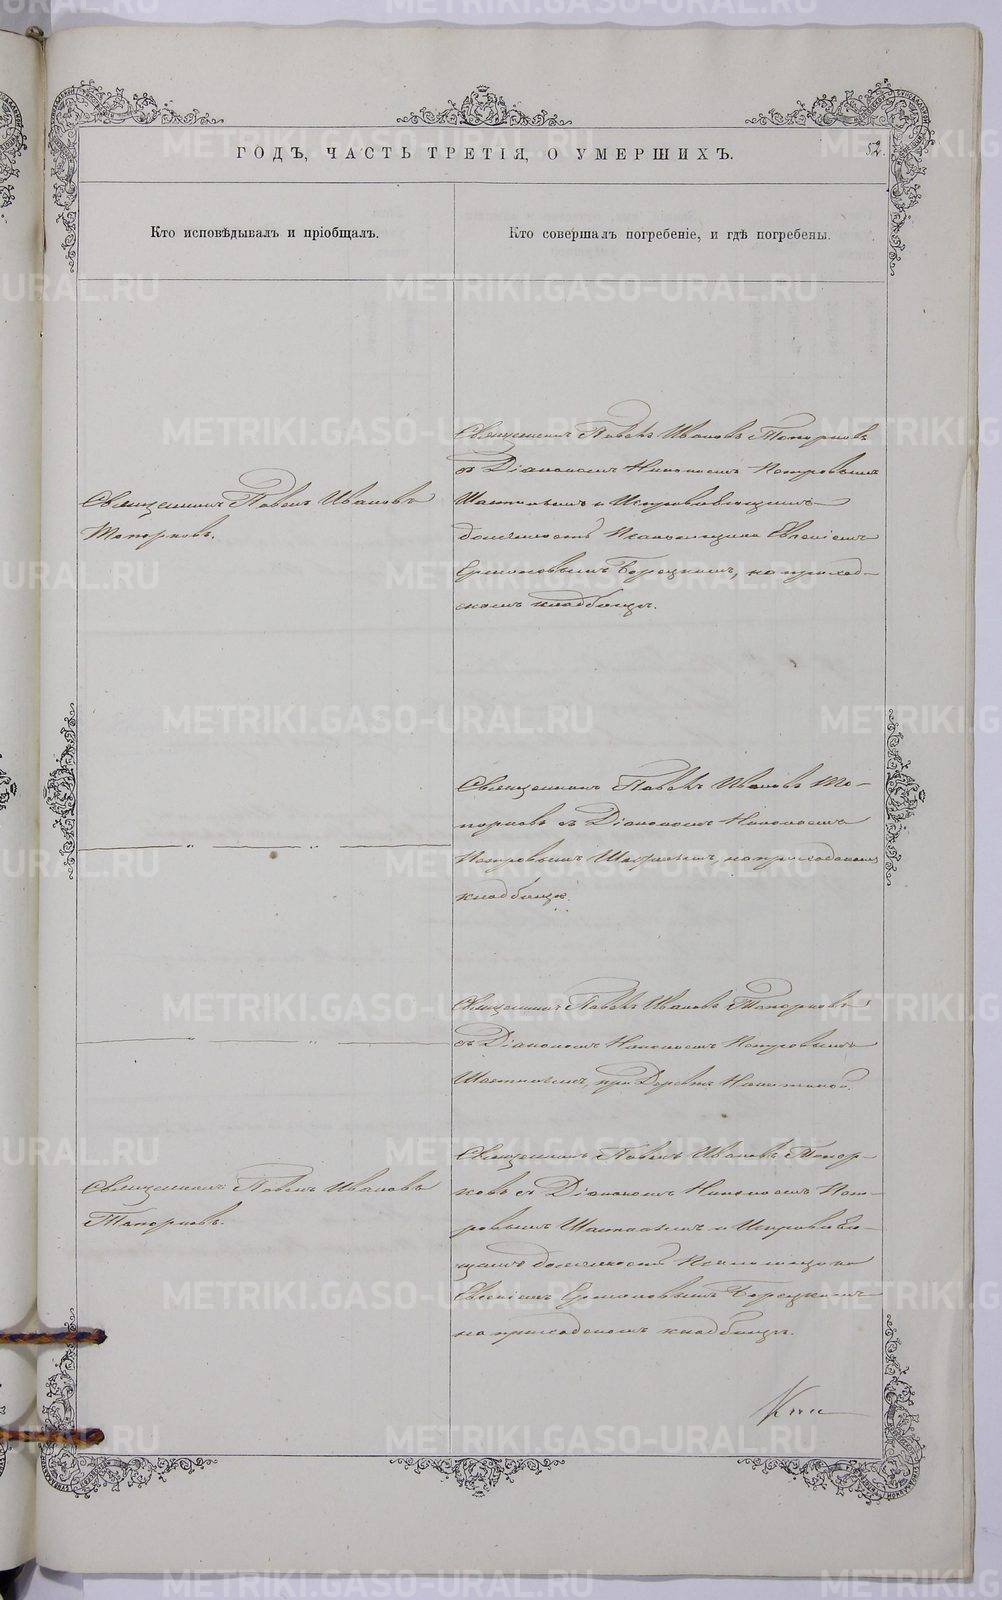 ГОДЪ, ЧАСТЬ ТРЕТІЯ, О УМЕРШИХЪ.
52.
Кто исповѣдывалъ и пріобщалъ.
Кто совершалъ погребеніе, и гдѣ погребены.
Священникъ Павелъ Ивановъ
Топорковъ.
Священникъ Павелъ Ивановъ Топорковъ
съ Діакономъ Николаемъ Петровымъ
и Исправляющимъ
должность Псаломщика Евгеніемъ
Ермиловымъ Борецкимъ, на приход-
скомъ кладбищѣ.
Священникъ Павелъ Ивановъ То-
порковъ съ Діакономъ Николаемъ
Петровымъ на приходскомъ
кладбищѣ.
Священникъ Павелъ Ивановъ Топорковъ
съ Діакономъ Николаемъ Петровымъ
при Деревнѣ
Священникъ Павелъ Ивановъ
Топорковъ.
Священникъ Павелъ Ивановъ Топор-
ковъ съ Діакономъ Николаемъ Пет-
ровымъ и Исправляю-
щимъ должность Псаломщика
Евгеніемъ Ермиловымъ Борецкимъ
на приходскомъ кладбищѣ.
METRIKI.GASO-URAL.RU